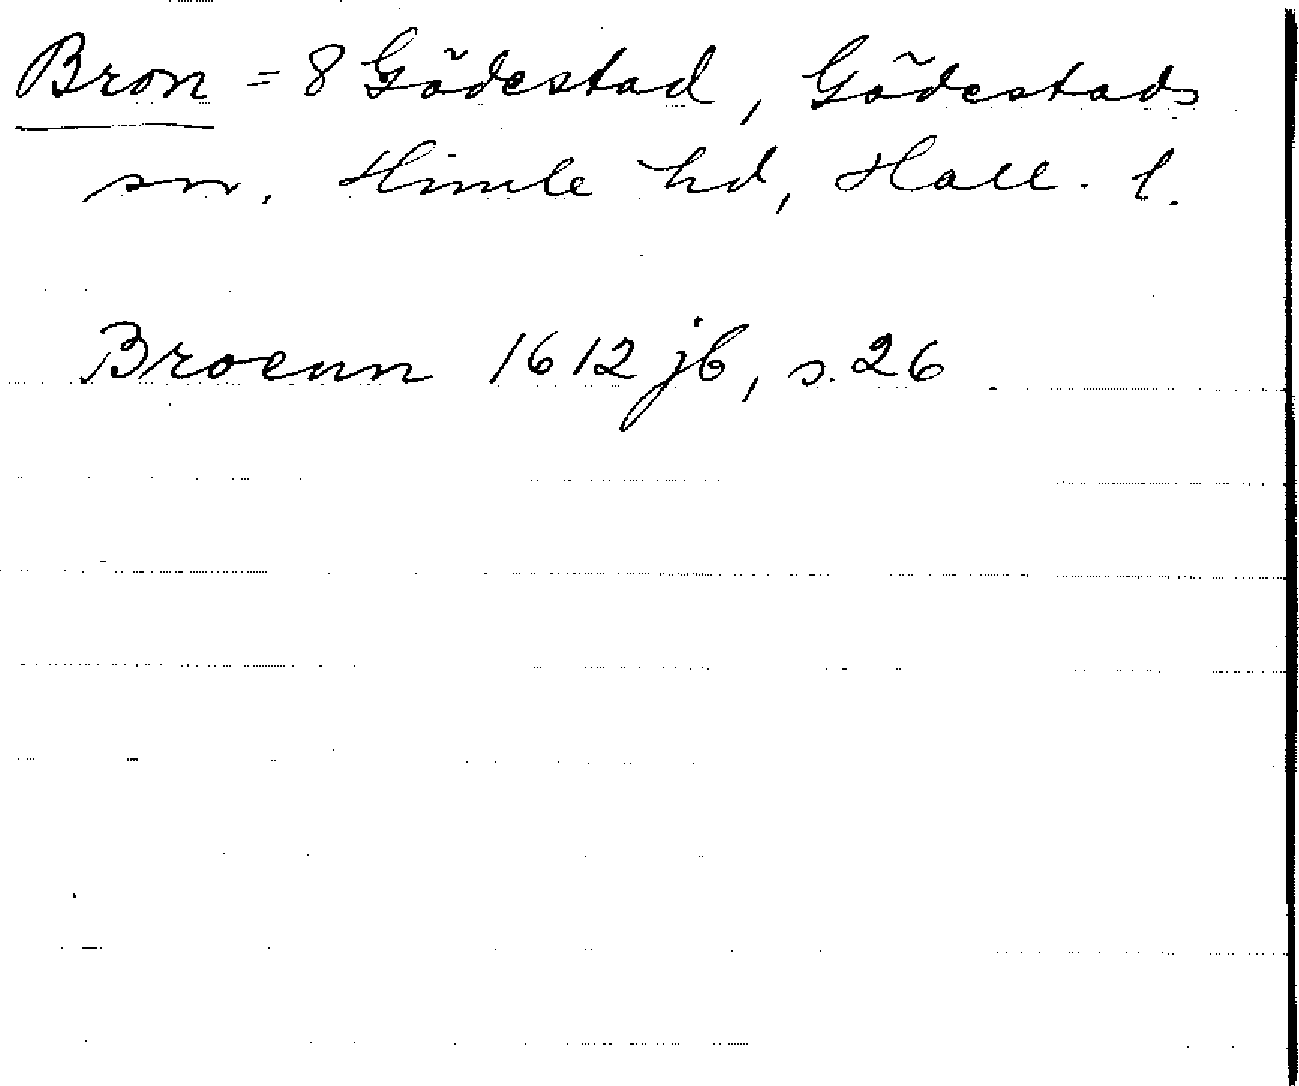 Bron = 8 Gödestad, Gödestads
sn. Himle hd, Hall. l.
Broenn 1612 jb, s. 26